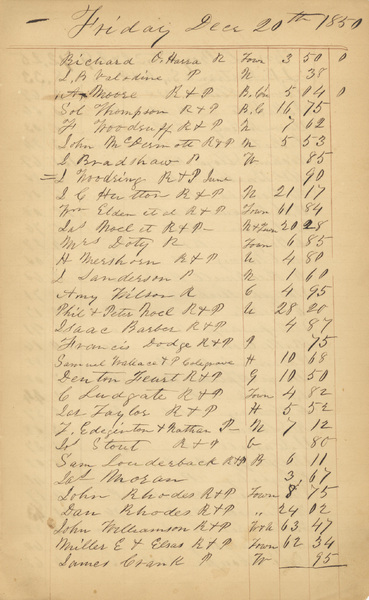 Friday Decr 20th 1850
Richard O Harra R Town 3 50 0
J. B Valodine P N 38
Moore R & P B. Ck 5 04 0
Sol Thompson R & P B. C 16 75
Woodruff R & P N 7 62
John McDermott R & P N 5 53
Bradshaw P W 85
Woodring R & P June 90
J C Hutton R & P N 21 17
Wm Elden et al R & P Town 61 84
Jas Noel et R & P N & Town 20 28
Mrs Doty R Town 6 85
H Mershorn R & P 4 80
J Sanderson P N 1 60
Amy Wilson R C 4 95
Phil & Peter Noel R & P 28 20
Isaac Barber R & P 4 87
Francis Dodge R & P 75
Samuel Wallace & P Colegrove H 10 68
Denton Heart R & P G 10 50
C Ludgate R & P Town 4 82
Taylor R & P H 5 52
Edeginton & Nathan P N 7 12
Stout R & P 80
Sam Louderback R & P R 6 11
Jas Moran 3 67
John Rhodes R & P Town 8 75
Dan Rhodes R & P " 24 02
John Williamson R & P 63 47
Miller E & Elias R & P Town 62 34
James Crank P W 95